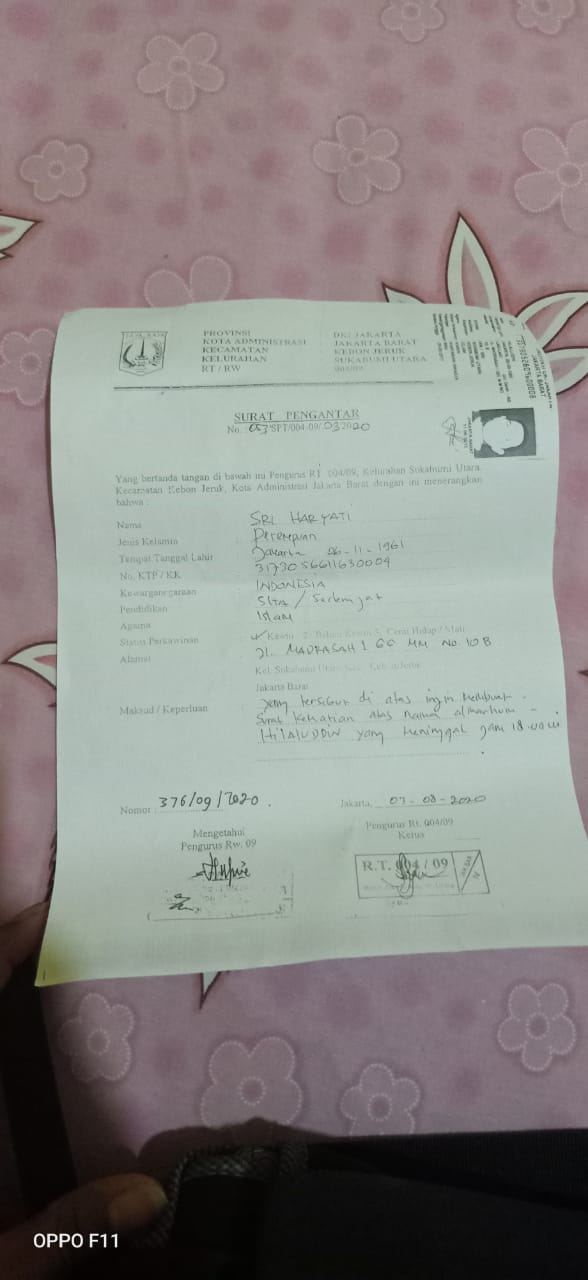 PROVINSI DKI JAKARTA
KOTA ADMINISTRASI JAKARTA BARAT
KECAMATAN KEBON JERUK
KELURAHAN SUKABUMI UTARA
RT / RW 004/09
JAYA RAYA
JAKARTA BARAT
SURAT PENGANTAR
No. /SPT/004-09/03/2020
Yang bertanda tangan di bawah ini Pengurus RT 004/09, Kelurahan Sukabumi Utara,
Kecamatan Kebon Jeruk, Kota Administrasi Jakarta Barat dengan ini menerangkan
bahwa :
Nama : SRI HARYATI
Jenis Kelamin : Perempuan
Tempat Tanggal Lahir : Jakarta 06-11-1961
No. KTP / KK : 3173056611630004
Kewarganegaraan : INDONESIA
Pendidikan : SLTA / Sederajat
Agama : Islam
Status Perkawinan : Kawin 2. Belum Kawin 3. Cerai Hidup / Mati
Alamat : Jl. MADRASAH 1 GG MM NO. 10B
Kel. Sukabumi Utara Kec. Kebon Jeruk
Jakarta Barat
Maksud / Keperluan : yang tersebut di atas ingin membuat -
Surat kematian atas nama almarhum -
HILALUDDIN yang meninggal jam 18.00
Nomor : 376/09/2020 .
Jakarta, 07-08-2020
Mengetahui
Pengurus Rw. 09
Pengurus Rt. 004/09
Ketua
R.T. 004 / 09
OPPO F11